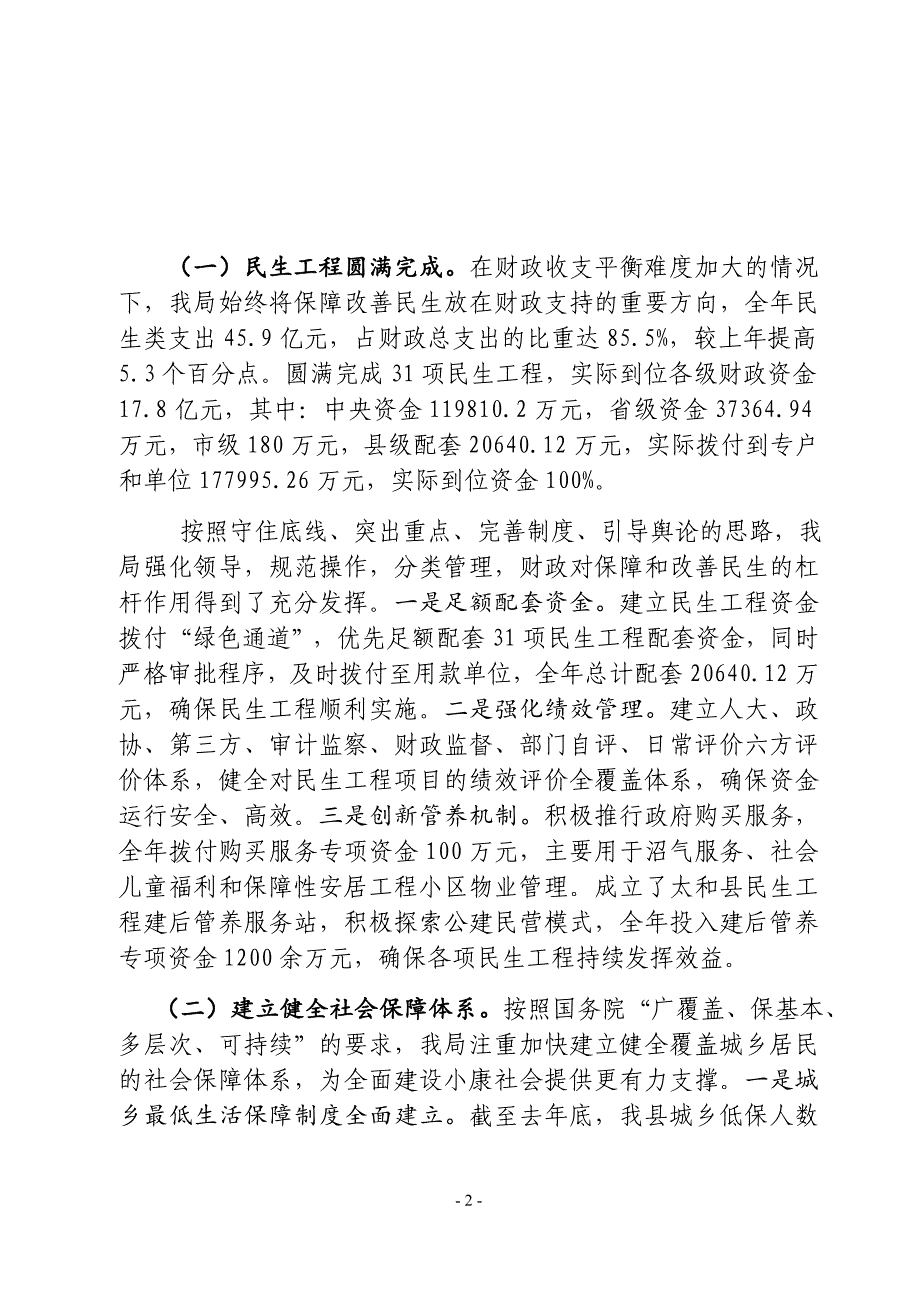 （一）民生工程圆满完成。在财政收支平衡难度加大的情况
下，我局始终将保障改善民生放在财政支持的重要方向，全年民
生类支出 45.9 亿元，占财政总支出的比重达 85.5%，较上年提高
5.3 个百分点。圆满完成 31 项民生工程，实际到位各级财政资金
17.8 亿元，其中：中央资金 119810.2 万元，省级资金 37364.94
万元，市级 180 万元，县级配套 20640.12 万元，实际拨付到专户
和单位 177995.26 万元，实际到位资金 100%。
按照守住底线、突出重点、完善制度、引导舆论的思路，我
局强化领导，规范操作，分类管理，财政对保障和改善民生的杠
杆作用得到了充分发挥。一是足额配套资金。建立民生工程资金
拨付“绿色通道”，优先足额配套 31 项民生工程配套资金，同时
严格审批程序，及时拨付至用款单位，全年总计配套 20640.12 万
元，确保民生工程顺利实施。二是强化绩效管理。建立人大、政
协、第三方、审计监察、财政监督、部门自评、日常评价六方评
价体系，健全对民生工程项目的绩效评价全覆盖体系，确保资金
运行安全、高效。三是创新管养机制。积极推行政府购买服务，
全年拨付购买服务专项资金 100 万元，主要用于沼气服务、社会
儿童福利和保障性安居工程小区物业管理。成立了太和县民生工
程建后管养服务站，积极探索公建民营模式，全年投入建后管养
专项资金 1200 余万元，确保各项民生工程持续发挥效益。
（二）建立健全社会保障体系。按照国务院“广覆盖、保基本、
多层次、可持续”的要求，我局注重加快建立健全覆盖城乡居民
的社会保障体系，为全面建设小康社会提供更有力支撑。一是城
乡最低生活保障制度全面建立。截至去年底，我县城乡低保人数
- 2 -